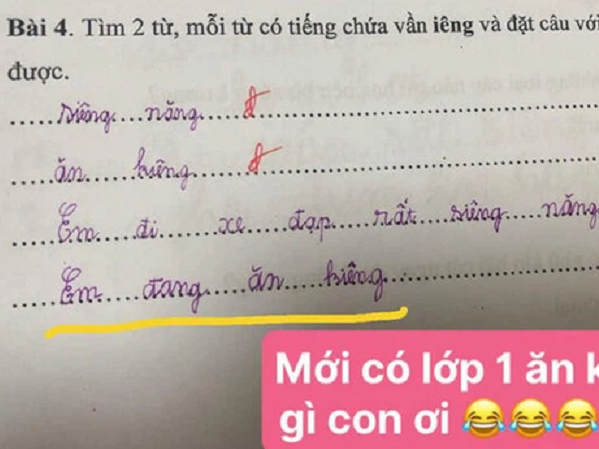 Bài 4. Tìm 2 từ, mỗi từ có tiếng chứa vần iêng và đặt câu với
được.
siêng năng
ăn kiêng
Em đi xe đạp rất siêng năng
Em đang ăn kiêng
Mới có lớp 1 ăn k
gì con ơi 😂😂😂